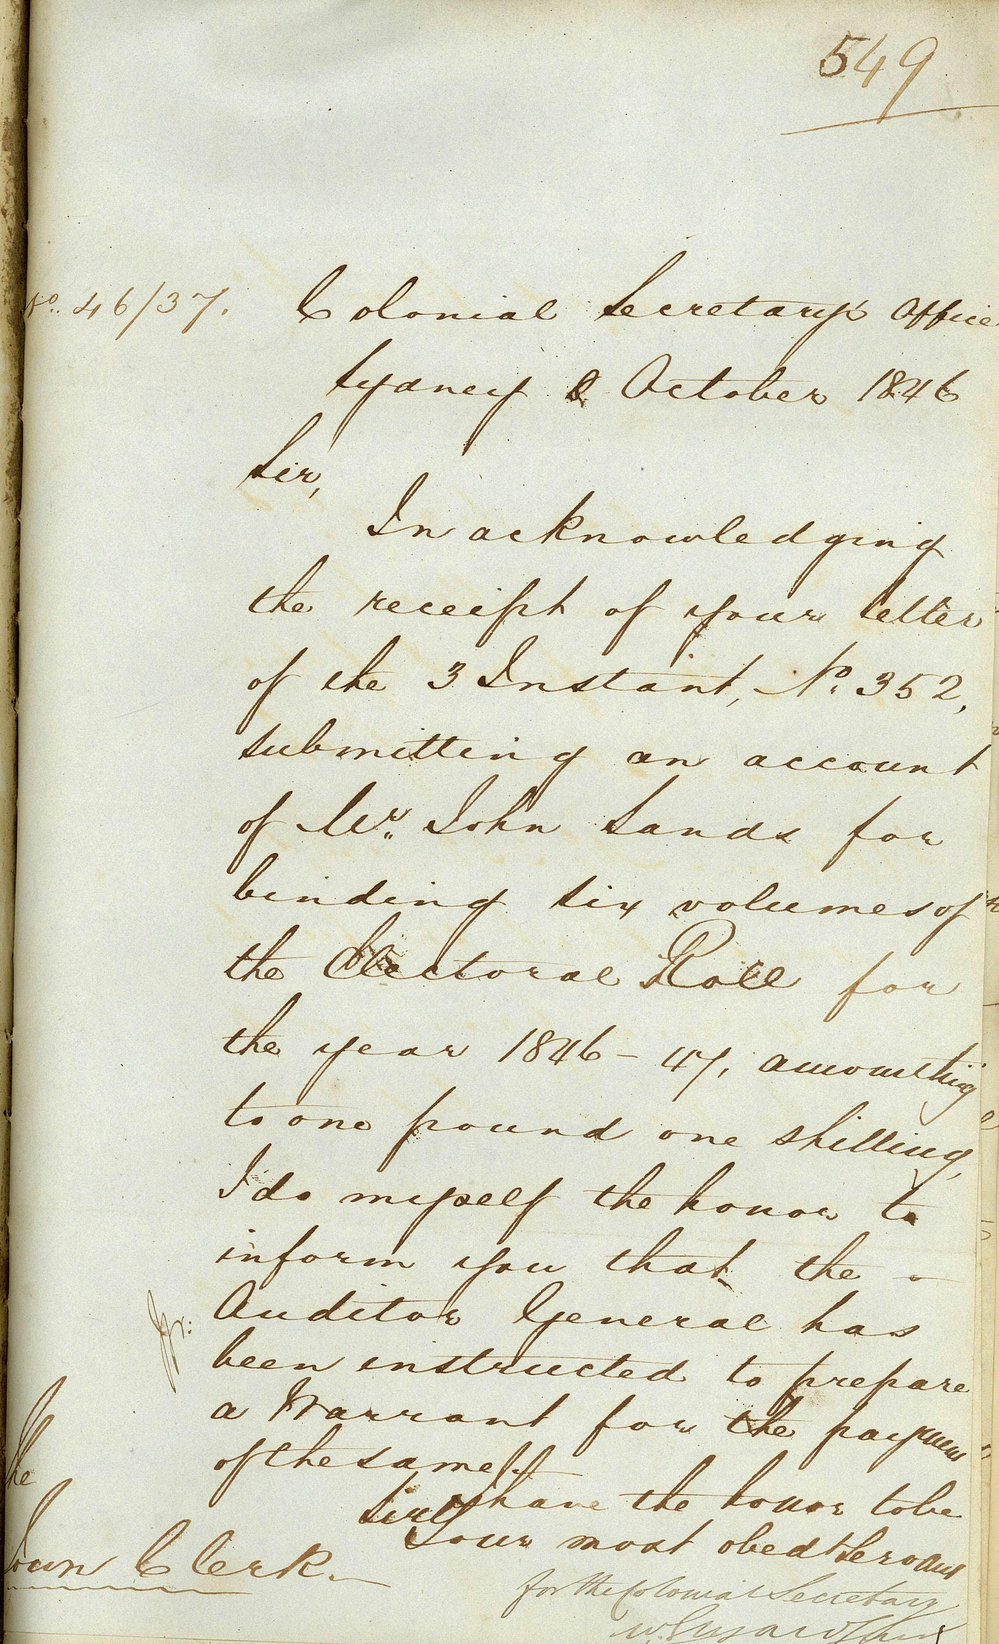 549
No. 46/37.
Colonial Secretary's Office
Sydney 8 October 1846
Sir,
In acknowledging
the receipt of your letter
of the 3 Instant, No. 352,
submitting an account
of Mr. John Sands for
binding six volumes of
the Electoral Roll for
the year 1846-47, amounting
to one pound one shilling,
I do myself the honor to
inform you that the
Auditor General has
been instructed to prepare
a Warrant for the payment
of the same.
I have the honor to be
Sir
Your most obedt Servant
for the Colonial Secretary
The
Town Clerk.